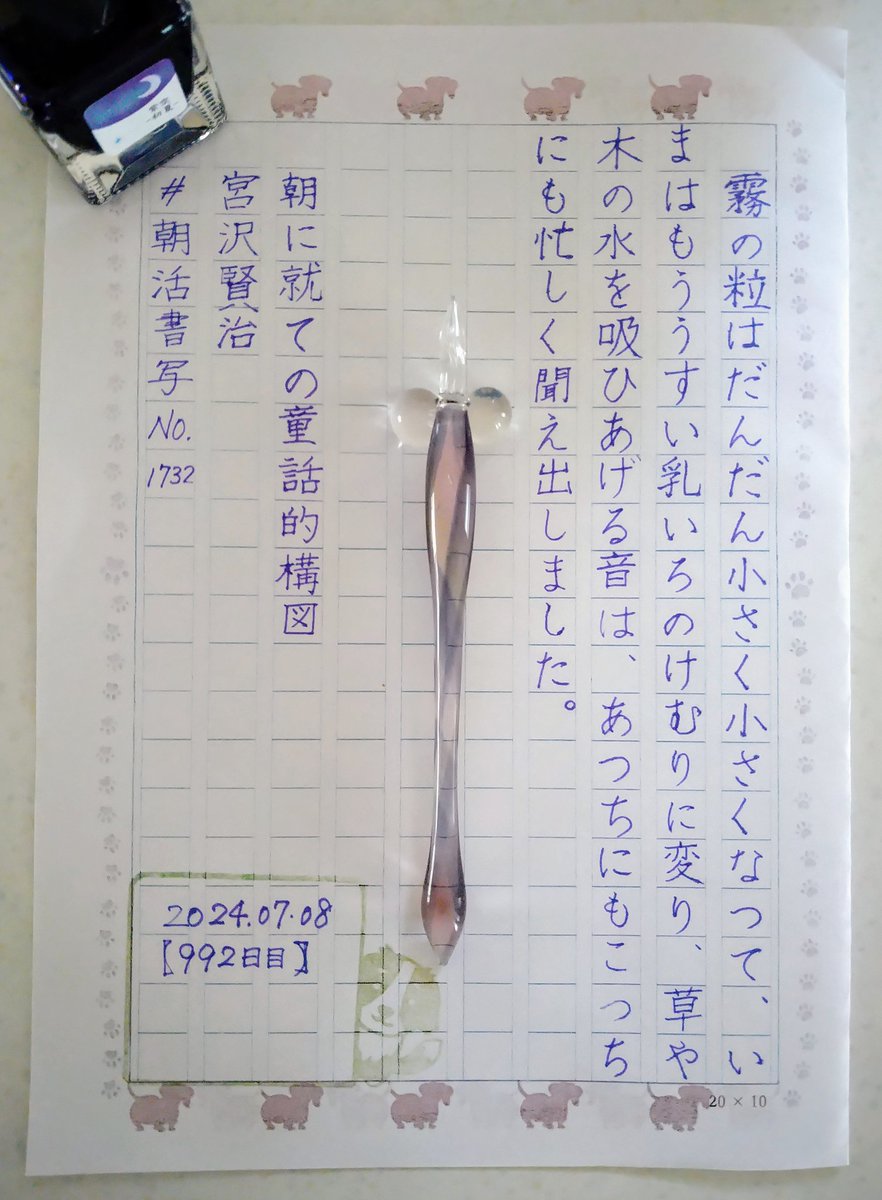 霧の粒はだんだん小さく小さくなつて、い
まはもううすい乳いろのけむりに変り、草や
木の水を吸ひあげる音は、あつちにもこつち
にも忙しく聞え出しました。
朝に就ての童話的構図
宮沢賢治
#朝活書写
No.
1732
2024.07.08
【992日目】
20×10